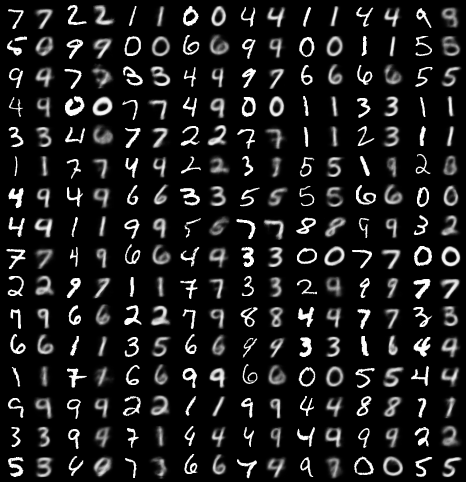 7 7 2 2 1 1 0 0 4 4 1 1 4 4 9 9
5 0 9 9 0 0 6 6 9 9 0 0 1 1 5 5
9 9 7 7 3 3 4 4 9 7 6 6 6 6 5 5
4 9 0 0 7 7 4 9 0 0 1 1 3 3 1 1
3 3 4 6 7 7 2 2 7 7 1 1 2 3 1 1
1 1 7 7 4 4 2 2 3 1 5 5 1 9 2 8
4 9 4 9 6 6 3 3 5 5 5 5 6 6 0 0
4 9 1 1 9 9 5 5 7 7 8 8 9 9 3 2
7 7 4 9 6 6 4 4 3 3 0 0 7 7 0 0
2 2 9 7 1 1 7 7 3 3 2 9 9 9 7 7
7 9 6 6 2 2 7 9 8 8 4 4 7 7 3 3
6 6 1 1 3 5 6 6 9 9 3 3 1 6 4 4
1 1 7 6 6 9 9 6 6 0 0 5 5 4 4
9 9 9 9 2 2 1 1 9 9 4 4 8 8 7 7
3 3 9 9 7 1 4 4 4 9 4 9 9 9 2 2
5 3 4 7 6 6 7 4 9 7 0 0 5 5